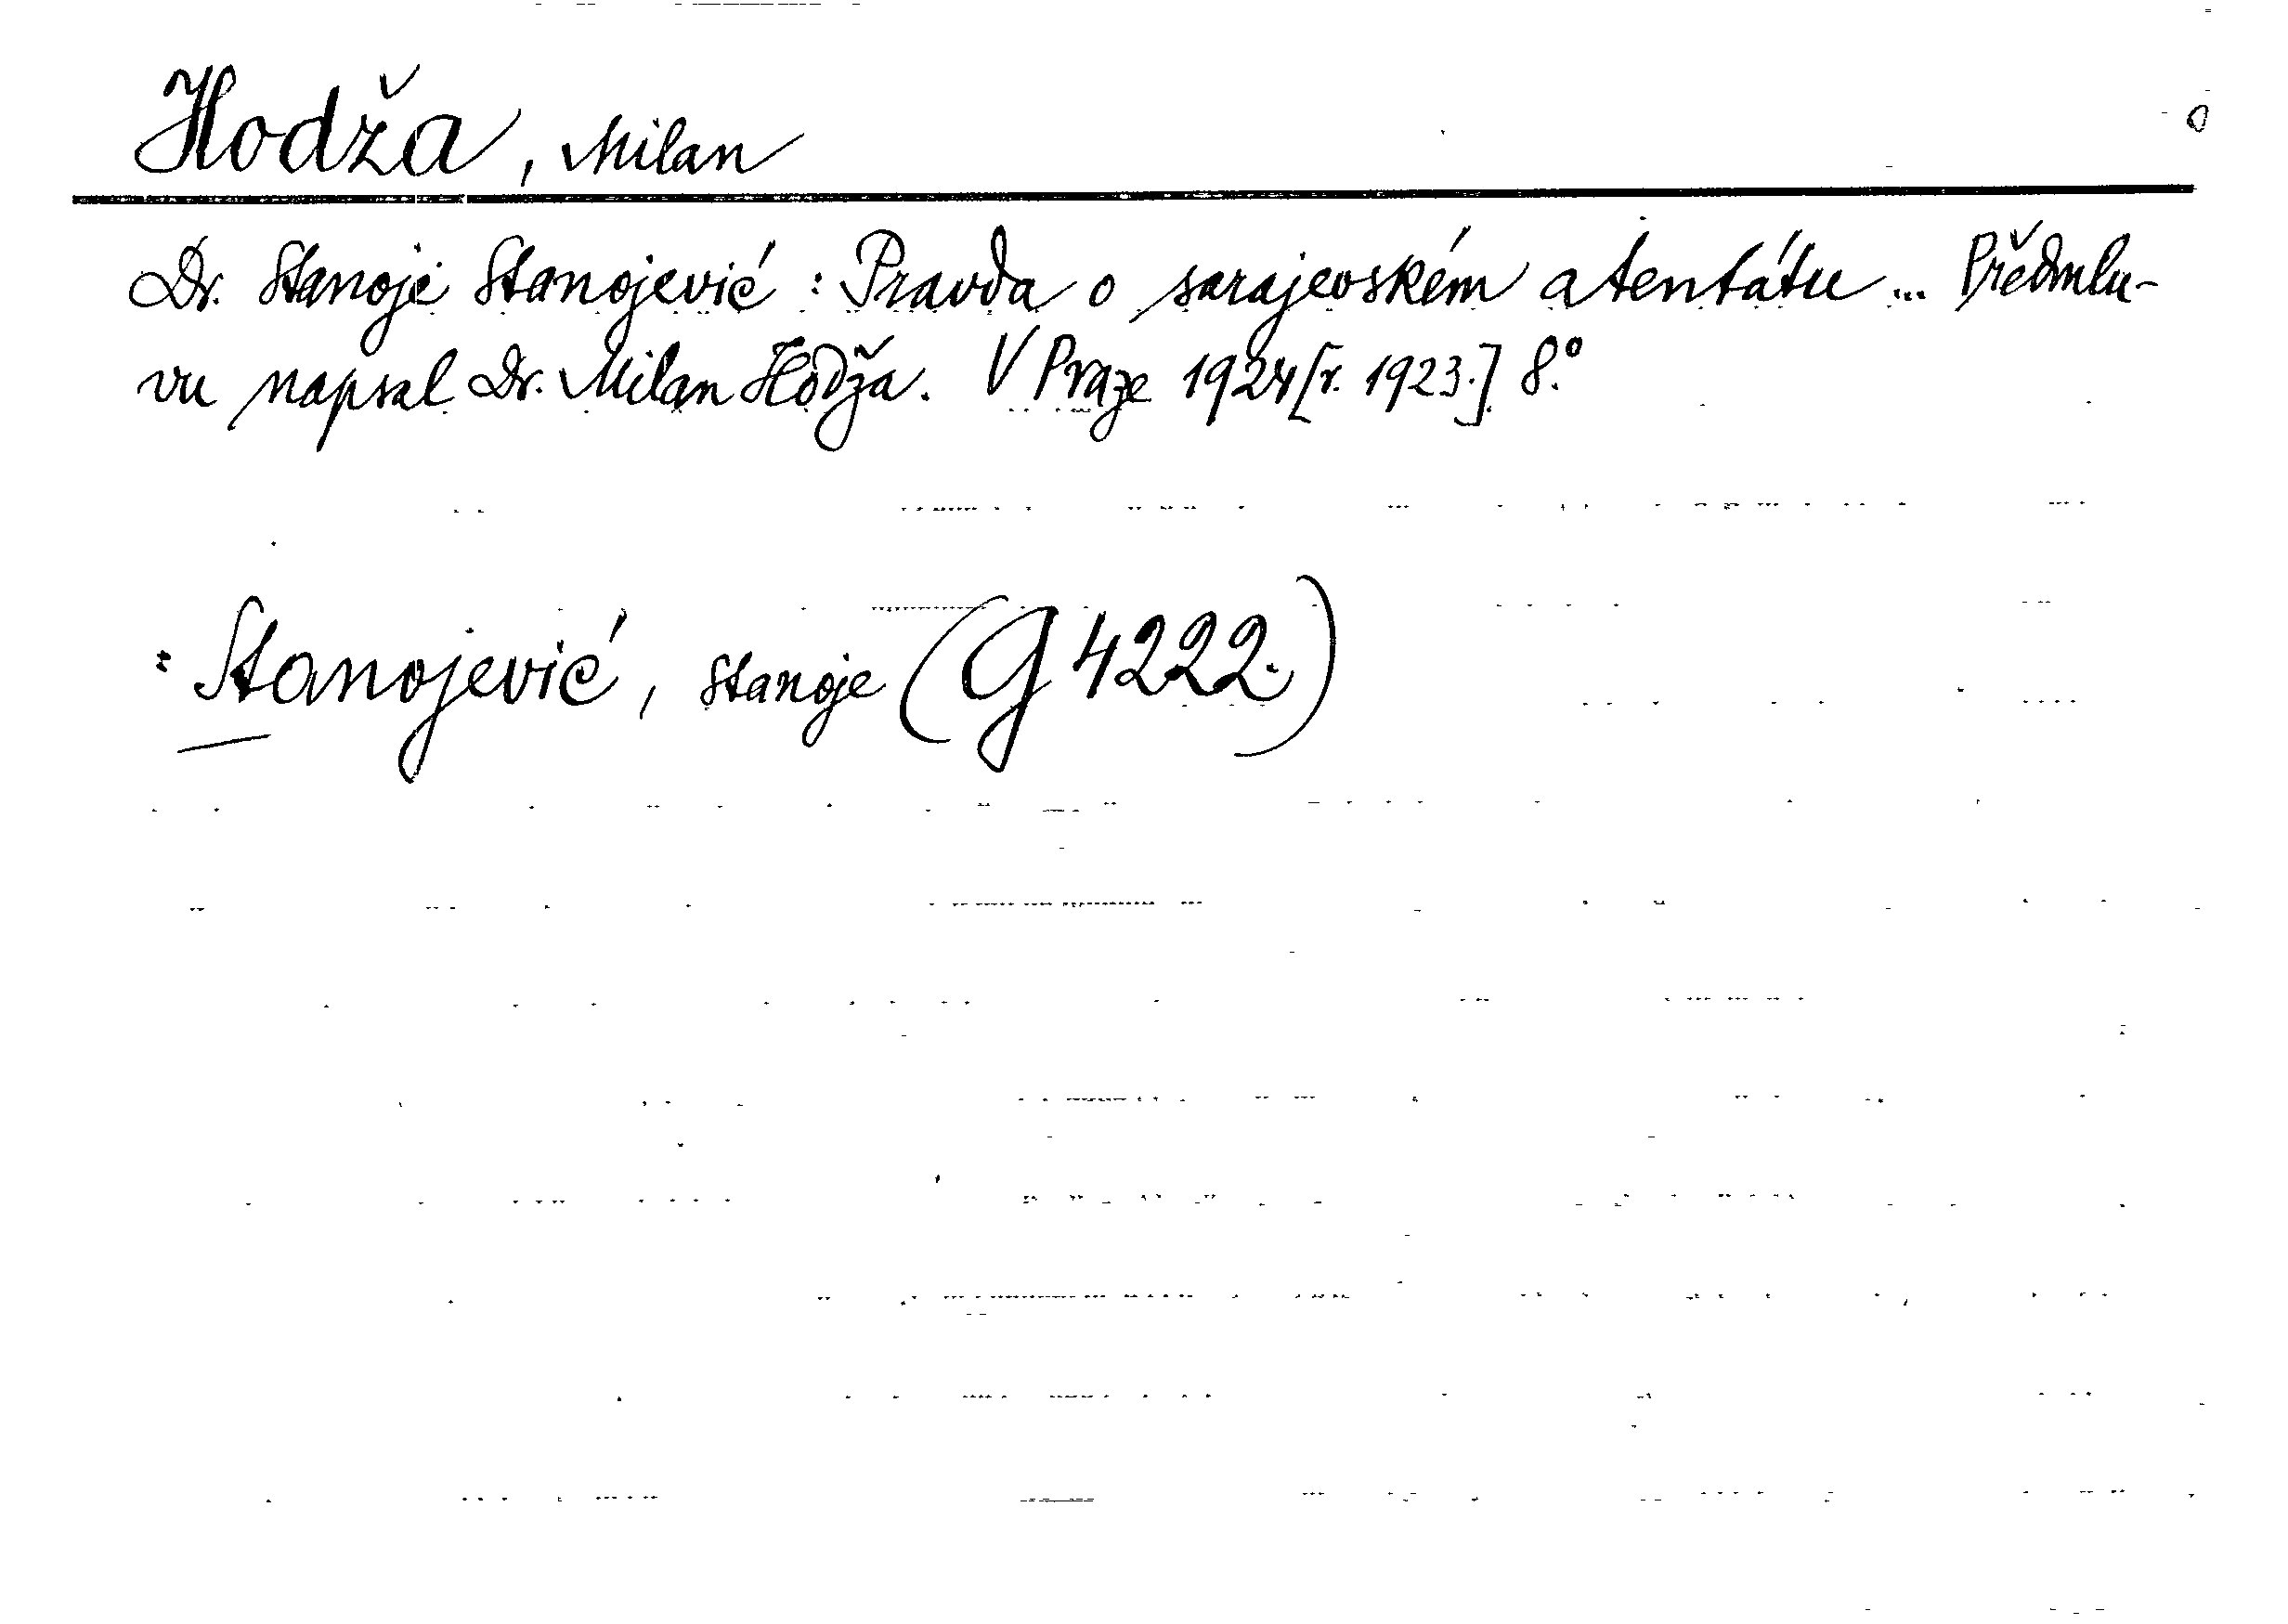 Hodža, Milan
Dr. Stanoje Stanojević : Pravda o sarajevském atentátu ... Předmlu-
vu napsal Dr. Milan Hodža. V Praze 1924 [r. 1923.] 8.°
: Stanojević, Stanoje (G 4222.)